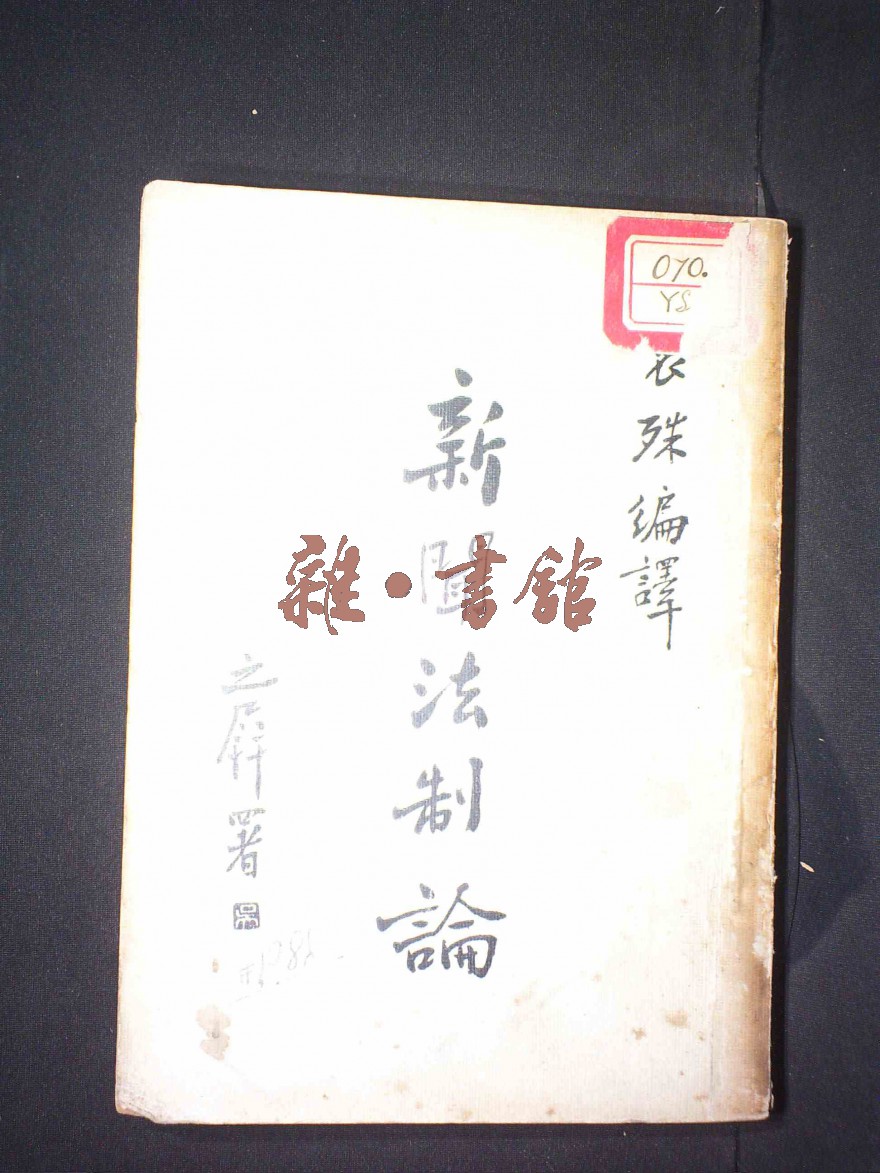 070.
YS
袁殊編譯
新聞法制論
之屏署
雜·書館